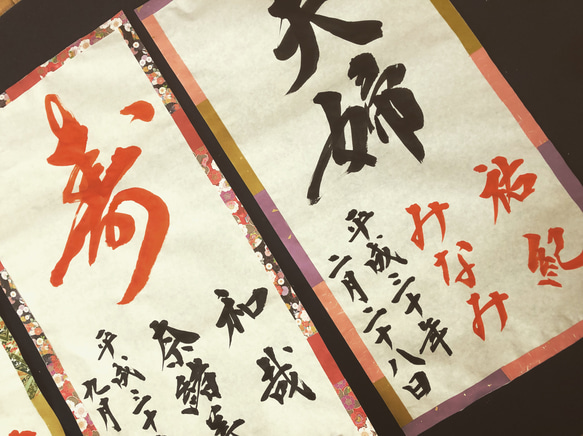 夫婦
祐
みなみ
平成三十年
二月二十八日
寿
和哉
奈緒美
平成三十
九月